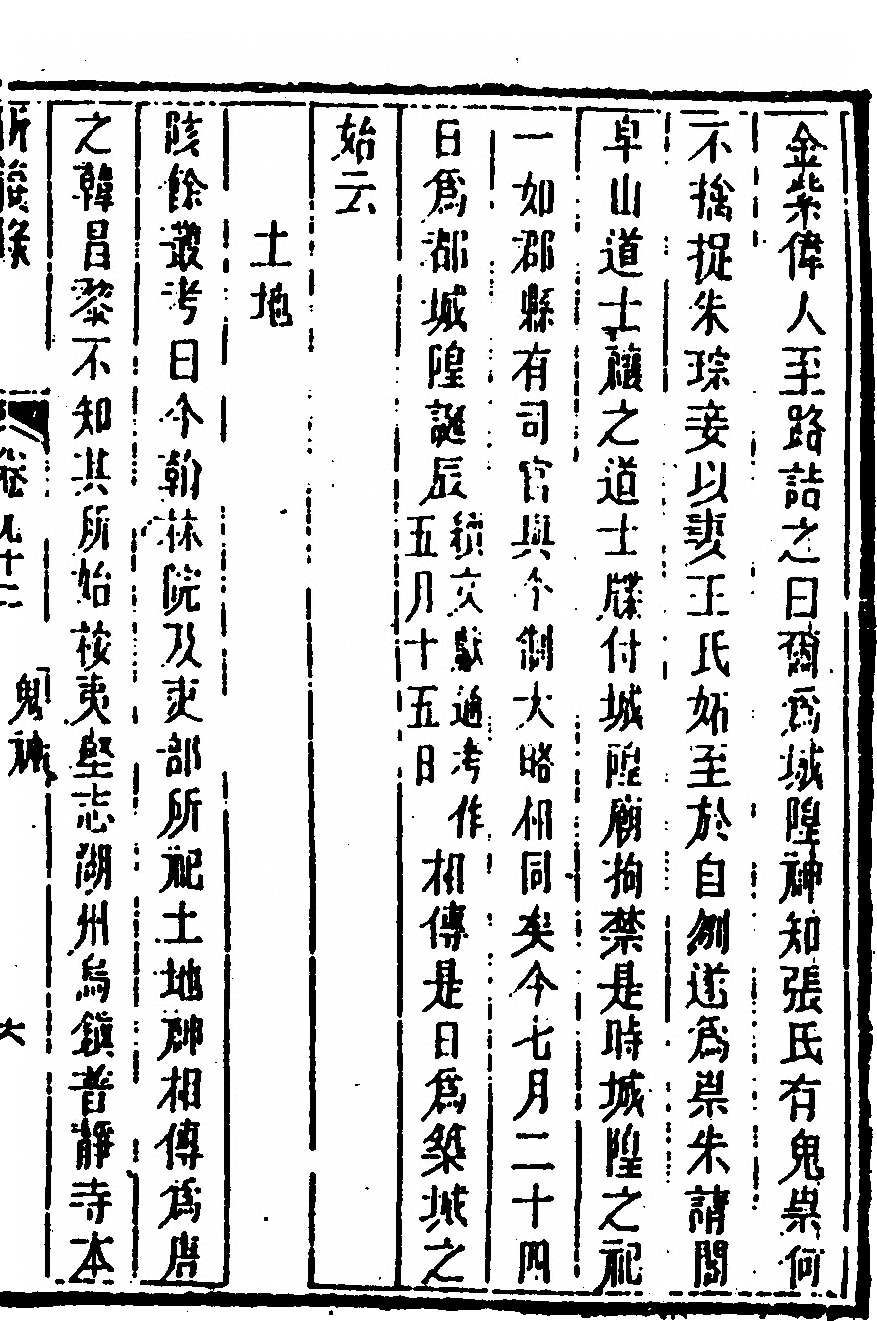 金紫偉人至路詰之曰爾為城隍神知張氏有鬼祟何
不擒捉朱琮妾以妻王氏妬至於自刎遂為祟朱請閤
皁山道士禳之道士牒付城隍廟拘禁是時城隍之祀
一如郡縣有司官與今制大略相同矣今七月二十四
日為都城隍誕辰續文獻通考作五月十五日相傳是日為築城之
始云
土地
陔餘叢考曰今翰林院及吏部所祀土地神相傳為唐
之韓昌黎不知其所始按夷堅志湖州烏鎮普靜寺本
卷九十二
鬼神
六